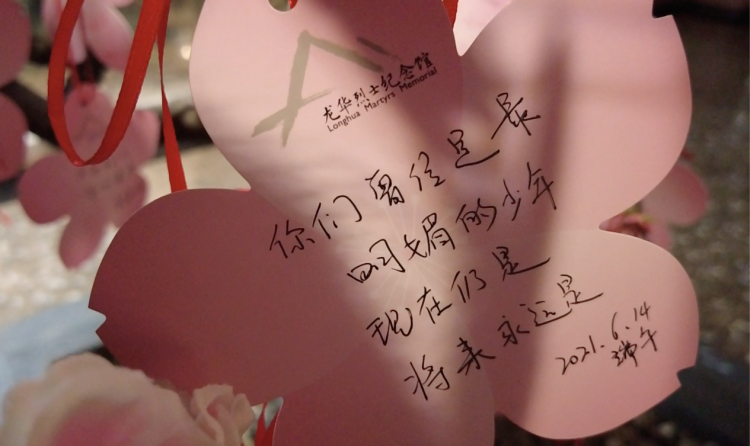 龙华烈士纪念馆
Longhua Martyrs Memorial
你们曾经是最
明媚的少年
现在仍是
将来永远是
2021.6.14
端午